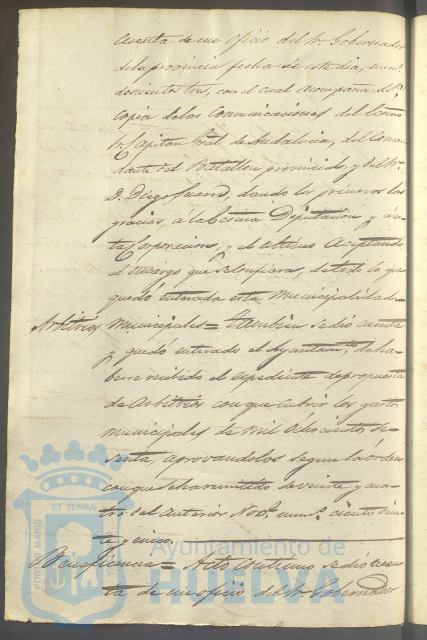 cuenta de un oficio del Sr. Gobernador
de la provincia fecha de este dia, num.º
doscientos tres, con el cual acompaña
copia de las Comunicaciones del Exmo
Sr. Capitan Gral de Andalucia, del Coman
dante del Batallon provincial, y del Sr.
D. Diego Garcia, dando los primeros las
gracias, á la Excma Diputacion y á es
ta Corporacion, y el ultimo aceptando
el encargo que se le confiera, de todo lo que
quedó enterada esta Municipalidad=
Arbitrios municipales= Tambien se dió cuenta
y quedó enterado el Ayuntamto de ha-
berse recibido el espediente de propuesta
de arbitrios con que cubrir los gastos
municipales de mil ochocientos se-
senta, aprovandolos segun la órden
con que se ha remitido de veinte y cua-
tro del anterior Nov.e num.º ciento vein
te y cinco.
Beneficencia= Acto continuo se dió cuen
ta de un oficio del Sr. Gobernador
PORTUS MARIS ET TERRA
Ayuntamiento de
HUELVA